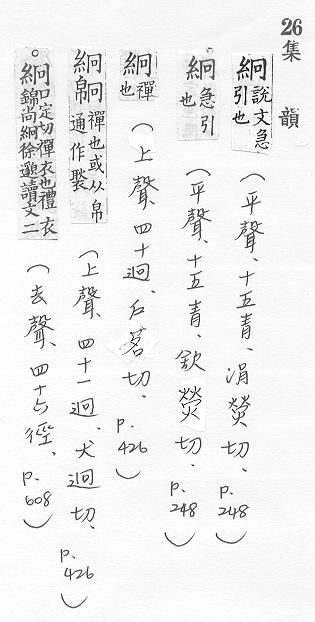 26 集韻
絅 說文急引也 （平聲、十五青、涓熒切、p.248）
絅 急引也 （平聲、十五青、欽熒切、p.248）
絅 襌也 （上聲、四十迥、戶茗切、p.426）
絅 𢂶 襌也或从帛通作褧 （上聲、四十一迥、犬迥切、p.426）
絅 口定切襌衣也禮衣錦尚絅徐邈讀文二 （去聲、四十六徑、p.608）